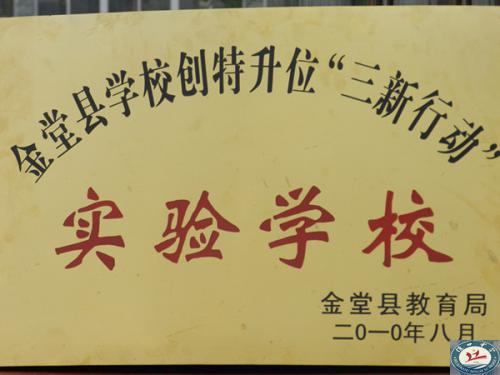 金堂县学校创特升位“三新行动”
实验学校
金堂县教育局
二0一0年八月